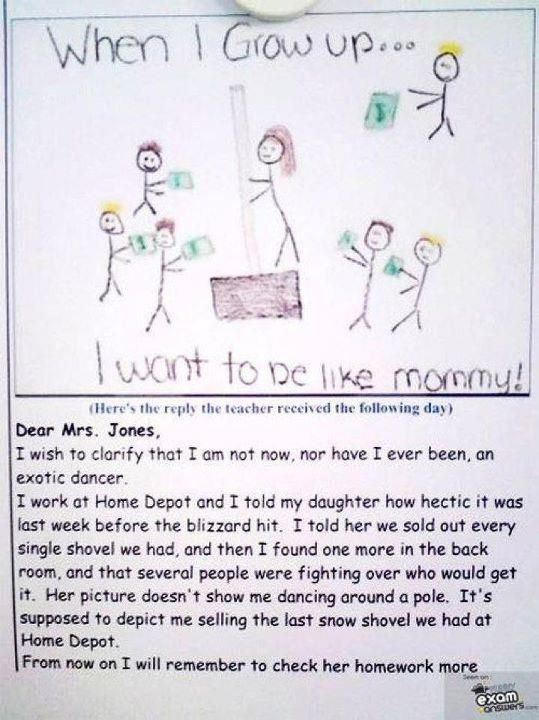 When I Grow up...
I want to be like mommy!
(Here's the reply the teacher received the following day)
Dear Mrs. Jones,
I wish to clarify that I am not now, nor have I ever been, an
exotic dancer.
I work at Home Depot and I told my daughter how hectic it was
last week before the blizzard hit. I told her we sold out every
single shovel we had, and then I found one more in the back
room, and that several people were fighting over who would get
it. Her picture doesn't show me dancing around a pole. It's
supposed to depict me selling the last snow shovel we had at
Home Depot.
From now on I will remember to check her homework more
Seen on
exam
answers.com